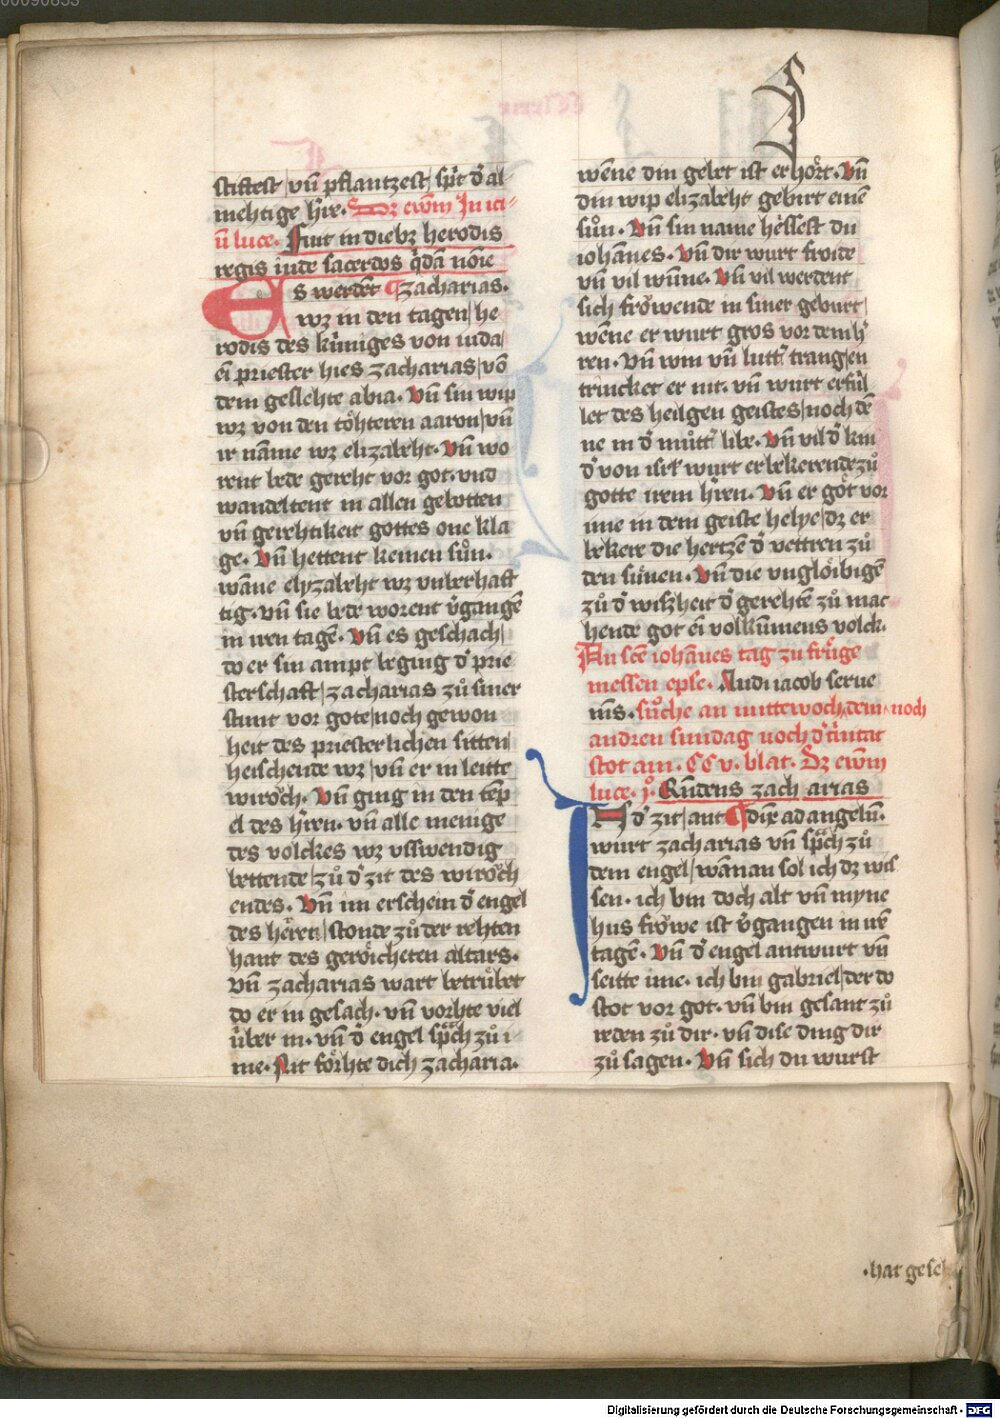 stiftest vn̄ pflantzest sp̄t d᷑ al
mehtige h᷑re. Dz ewm̄ In ici
n̄ luce. Fuit in diebz herodis
regis iude sacerdos q̄dā noīe
Es werdēt zacharias.
wz in den tagen he
rodis des kúniges von iuda
eī priester hies zacharias / vō
dem geslehte abia. Vn̄ sin wip
wz von den tóhteren aaron / vn̄
ir nāme wz elizabeht. Vn̄ wo
rent bede gereht vor got. vnd
wandeltent in allen gebotten
vn̄ gerehtikeit gottes one kla
ge. Vn̄ hettent keinen sůn.
wāne elyzabeht wz vnberhaft
tig. vn̄ sie bede worent v᷑gangē
in iren tagē. Vn̄ es geschach
do er sin ampt beging d᷑ prie
sterschaft / zacharias zů siner
stunt vor gote / noch gewon
heit des priesterlichen sitten
heischende wz / vn̄ er in leitte
wiroͤch. Vn̄ ging in den tēp
el des h᷑ren. vn̄ alle menige
des volckes wz vsswendig
bettende / zů d᷑ zit des wiroͤch
endes. Vn̄ im erschein d᷑ engel
des hērēn / stonde zů der rehten
hant des geroͤicheten altars.
Vn̄ zacharias wart betruͤbet
do er in gesach. vn̄ vorhte viel
úber in. vn̄ d᷑ engel sp̄ch zů i
me. Nit foͤrhte dich zacharia.
wēne din gebet ist erhoͤrt. Vn̄
din wip elizabeht gebirt einē
sůn. Vn̄ sin name hēssest du
iohānes. Vn̄ dir wurt froide
vn̄ vil wūne. Vn̄ vil werdent
sich froͤwende in siner geburt
wēne er wurt gros vor dem h᷑
ren. Vn̄ win vn̄ lutt᷑ trang en
trincket er nit. vn̄ wurt erfúl
let des heilgen geistes / noch dē
ne in d᷑ můtt᷑ libe. Vn̄ vil d᷑ kin
d᷑ von isrl̄ wurt er bekerende zů
gotte irem h᷑ren. Vn̄ er got vor
ime in dem geiste helye / dz er
bekere die hertzē d᷑ vettren zů
den súnen. Vn̄ die vngloͤibigē
zů d᷑ wiszheit d᷑ gerehtē zů mac
hende got eī volkūmens volck.
An scē iohānes tag zu frúge
messen eple. Audi iacob serue
m̄s. sůche an mittewoch dem noch
andren sundag noch d᷑ t᷑nitat
stot am. CC v. blat. Dz ewm̄
luce. j. Rn̄dens zach arias
An d᷑ zit / ant dix̄ ad angelū.
wurt zacharias vn̄ sp̄ch zů
dem engel / wānan sol ich dz wis
sen. ich bin doch alt vn̄ myne
hus froͤwe ist v᷑gangen in irē
tagē. Vn̄ d᷑ engel antwurt vn̄
seitte ime. ich bin gabriel / der do
stot vor got. vn̄ bin gesant zů
reden zů dir. vn̄ dise ding dir
zů sagen. Vn̄ sich du wurst
.hat gesch
Digitalisierung gefördert durch die Deutsche Forschungsgemeinschaft - DFG